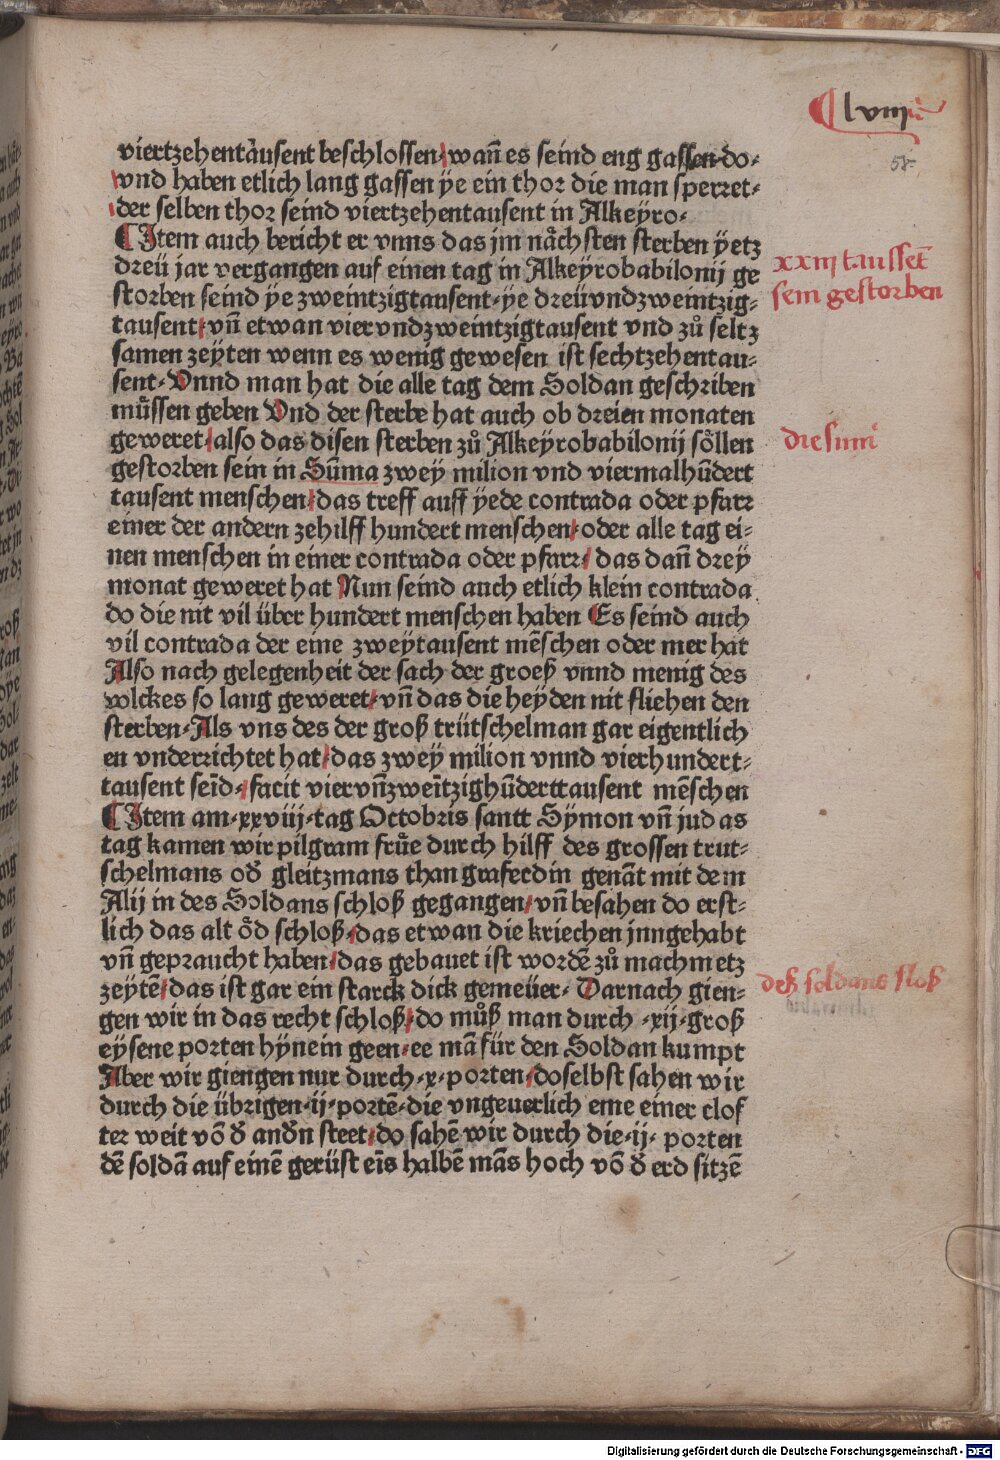 lviii
58.
viertzehentausent beschlossen/wañ es seind eng gassen do⸗
vnd haben etlich lang gassen ÿe ein thor die man sperret⸗
der selben thor seind viertzehentausent in Alkeyro⸗
¶ Item auch bericht er vnns das jm nächsten sterben ÿetz
dreü jar vergangen auf einen tag in Alkeyrobabilonij ge
storben seind ÿe zweintzigtausent⸗ÿe dreüvndzweintzig⸗
tausent/vñ etwan viervndzweintzigtausent vnd zů seltz
samen zeÿten wenn es wenig gewesen ist sechtzehentau⸗
sent⸗Vnnd man hat die alle tag dem Soldan geschriben
müssen geben Vnd der sterbe hat auch ob dreien monaten
geweret/also das disen sterben zů Alkeyrobabilonij söllen
gestorben sein in Sūma zweÿ milion vnd viermalhūdert
tausent menschen/das treff auff ÿede contrada oder pfarr
einer der andern zehilff hundert menschen/oder alle tag ei⸗
nen menschen in einer contrada oder pfarr/das dañ dreÿ
monat geweret hat Nun seind auch etlich klein contrada
do die nit vil über hundert menschen haben Es seind auch
vil contrada der eine zweÿtausent mēschen oder mer hat
Also nach gelegenheit der sach der groeß vnnd menig des
volckes so lang geweret/vñ das die heÿden nit fliehen den
sterben⸗Als vns des der groß trütschelman gar eigentlich
en vnderrichtet hat/das zweÿ milion vnnd vierhundert⸗
tausent seīd⸗/facit viervñzweītzighūderttausent mēschen
¶ Item am⸗xxviij⸗tag Octobris santt Sÿmon vñ judas
tag kamen wir pilgram früe durch hilff des grossen trut⸗
schelmans oď gleitzmans than graferdin genāt mit dem
Alij in des Soldans schloß gegangen/vñ besahen do erst⸗
lich das alt öd schloß/das etwan die kriechen jnngehabt
vñ gepraucht haben/das gebauet ist wordē zů machmetz
zeytē/das ist gar ein starck dick gemeüer⸗Darnach gien⸗
gen wir in das recht schloß/do můß man durch⸗xij⸗groß
eÿsene porten hÿnein geen⸗ee mā für den Soldan kumpt
Aber wir giengen nur durch⸗x⸗porten/doselbst sahen wir
durch die übrigen⸗ij⸗portē⸗die vngeuerlich eine einer clof
ter weit vō ď anďn steet/do sahē wir durch die⸗ij⸗porten
dē soldā auf einē gerüst eīs halbē mās hoch vō ď erd sitzē
xxiij taussēt
sein gestorben
die sum̄
deß soldans sloß
Digitalisierung gefördert durch die Deutsche Forschungsgemeinschaft - DFG